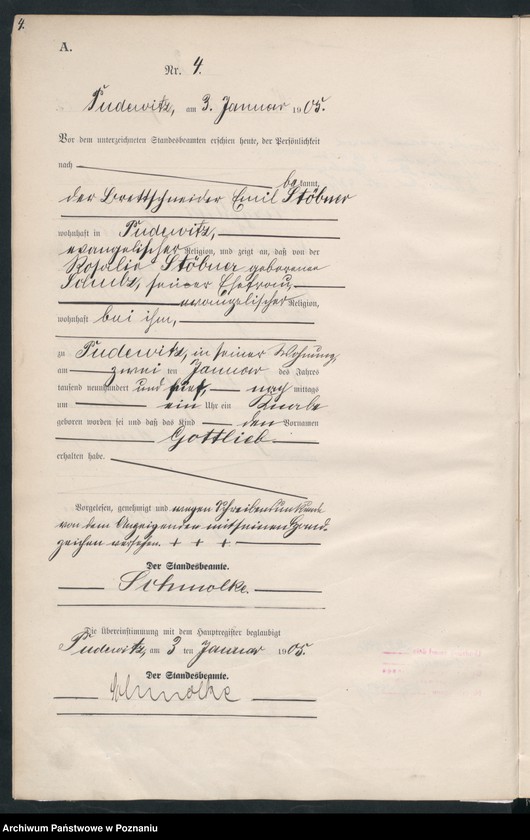 4.
A.
Nr. 4.
Pudewitz, am 3. Januar 1905.
Vor dem unterzeichneten Standesbeamten erschien heute, der Persönlichkeit
nach
be kannt,
der Brettschneider Emil Stöbner
wohnhaft in Pudewitz,
evangelischer Religion, und zeigt an, daß von der
Rosalie Stöbner geborenen
seiner Ehefrau,
evangelischer Religion,
wohnhaft bei ihm,
zu Pudewitz, in seiner Wohnung
am zwei ten Januar des Jahres
tausend neunhundert und fünf, nach mittags
um ein Uhr ein Knabe
geboren worden sei und daß das Kind den Vornamen
Gottlieb
erhalten habe.
Vorgelesen, genehmigt und wegen Schreibensunkunde
von dem Anzeigenden mit seinem Hand-
zeichen versehen. + + +
Der Standesbeamte.
Schmolke.
Die Übereinstimmung mit dem Hauptregister beglaubigt
Pudewitz, am 3 ten Januar 1905.
Der Standesbeamte.
Schmolke
Archiwum Państwowe w Poznaniu